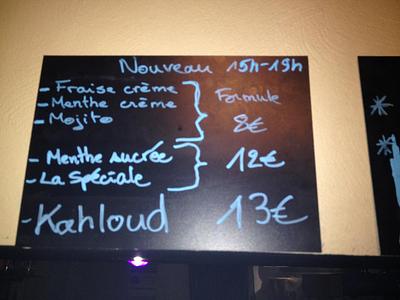 Nouveau 15h-19h
- Fraise crème
- Menthe crème
- Mojito
Formule
8€
- Menthe sucrée
- La Spéciale
12€
- Kahloud 13€